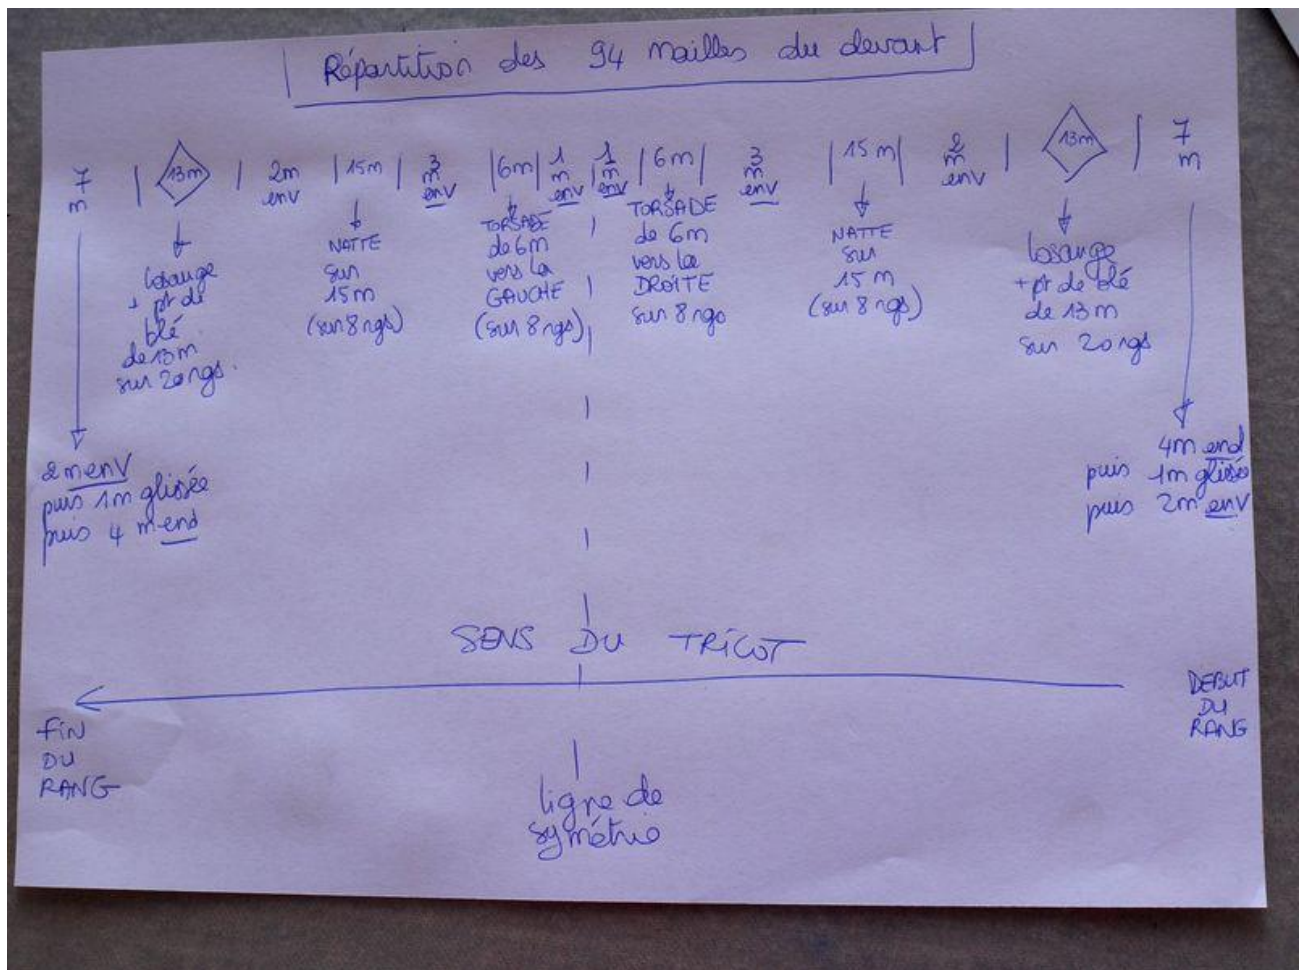 Répartition des 94 mailles du devant
7 m | 13m | 2m env | 15m | 3 m env | 6m | 1 m env | 1 m env | 6m | 3 m env | 15m | 2 m env | 13m | 7 m
losange
+ pt de
blé
de 13m
sur 20 rgs.
NATTE
sur
15m
(sur 8 rgs)
TORSADE
de 6m
vers la
GAUCHE
(sur 8 rgs)
TORSADE
de 6m
vers la
DROITE
sur 8 rgs
NATTE
sur
15m
(sur 8 rgs)
losange
+ pt de blé
de 13m
sur 20 rgs
2 m env
puis 1m glissée
puis 4 m end
4m end
puis 1m glissée
puis 2m env
SENS DU TRICOT
FIN
DU
RANG
DEBUT
DU
RANG
ligne de
symétrie